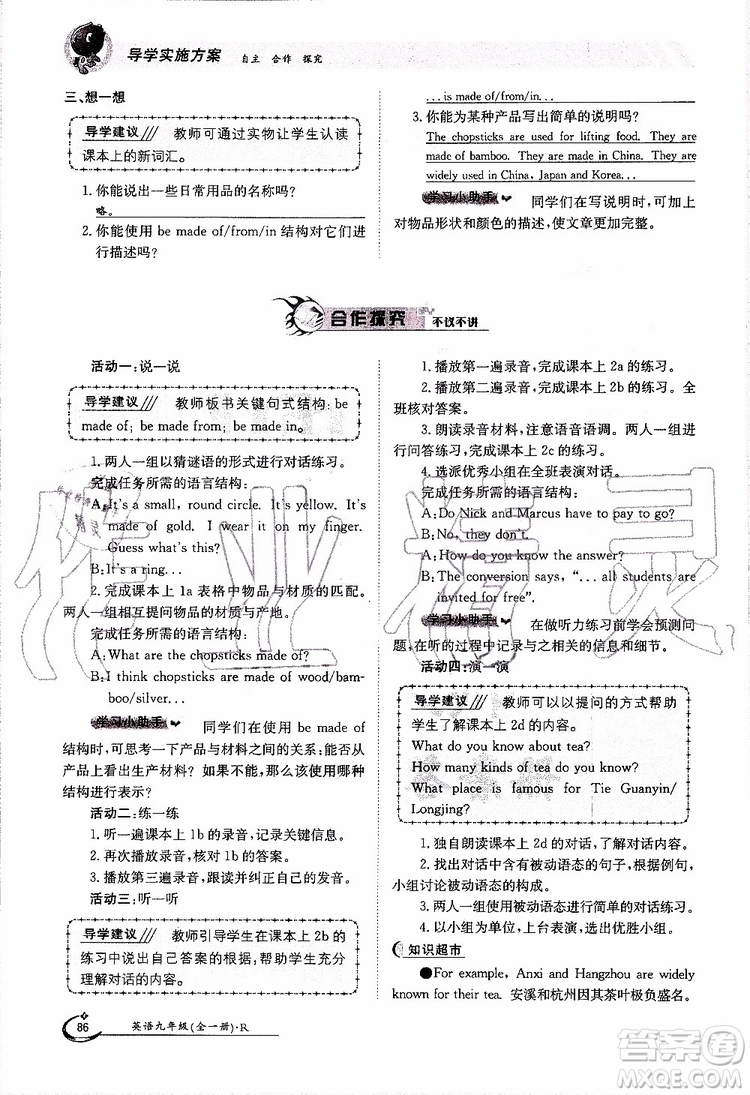 导学实施方案 自主 合作 探究
三、想一想
导学建议 教师可通过实物让学生认读
课本上的新词汇。
1. 你能说出一些日常用品的名称吗?
略。
2. 你能使用 be made of/from/in 结构对它们进
行描述吗?
...is made of/from/in...
3. 你能为某种产品写出简单的说明吗?
The chopsticks are used for lifting food. They are
made of bamboo. They are made in China. They are
widely used in China, Japan and Korea...
学习小助手 同学们在写说明时,可加上
对物品形状和颜色的描述,使文章更加完整。
合作探究 不议不讲
活动一:说一说
导学建议 教师板书关键句式结构: be
made of; be made from; be made in。
1. 两人一组以猜谜语的形式进行对话练习。
完成任务所需的语言结构:
A: It's a small, round circle. It's yellow. It's
made of gold. I wear it on my finger.
Guess what's this?
B: It's a ring...
2. 完成课本上 1a 表格中物品与材质的匹配。
两人一组相互提问物品的材质与产地。
完成任务所需的语言结构:
A: What are the chopsticks made of?
B: I think chopsticks are made of wood/bam-
boo/silver...
学习小助手 同学们在使用 be made of
结构时,可思考一下产品与材料之间的关系;能否从
产品上看出生产材料? 如不能,那么该如何使用哪种
结构进行表示?
活动二:练一练
1. 听一遍课本上 1b 的录音,记录关键信息。
2. 再次播放录音,核对 1b 的答案。
3. 播放第三遍录音,跟读并纠正自己的发音。
活动三:听一听
导学建议 教师引导学生在课本上 2b 的
练习中说出自己答案的根据,帮助学生充分
理解对话的内容。
1. 播放第一遍录音,完成课本上 2a 的练习。
2. 播放第二遍录音,完成课本上 2b 的练习。全
班核对答案。
3. 朗读录音材料,注意语音语调。两人一组进
行问答练习,完成课本上 2c 的练习。
4. 选派优秀小组在全班表演对话。
完成任务所需的语言结构:
A: Do Nick and Marcus have to pay to go?
B: No, they don't.
A: How do you know the answer?
B: The conversion says, “... all students are
invited for free”.
学习小助手 在做听力练习前学会预测问
题,在听的过程中记录与之相关的信息和细节。
活动四:演一演
导学建议 教师可以以提问的方式帮助
学生了解课本上 2d 的内容。
What do you know about tea?
How many kinds of tea do you know?
What place is famous for Tie Guanyin/
Longjing?
1. 独自朗读课本上 2d 的对话,完成对话内容。
2. 找出对话中含有被动语态的句子,根据例句,
小组讨论被动语态的构成。
3. 两人一组使用被动语态进行简单的对话练习。
4. 以小组为单位,上台表演,选出最优小组。
知识超市
●For example, Anxi and Hangzhou are widely
known for their tea. 安溪和杭州因其茶叶极负盛名。
86 英语九年级(全一册)·R
作业精灵
答案圈
MXQE.COM